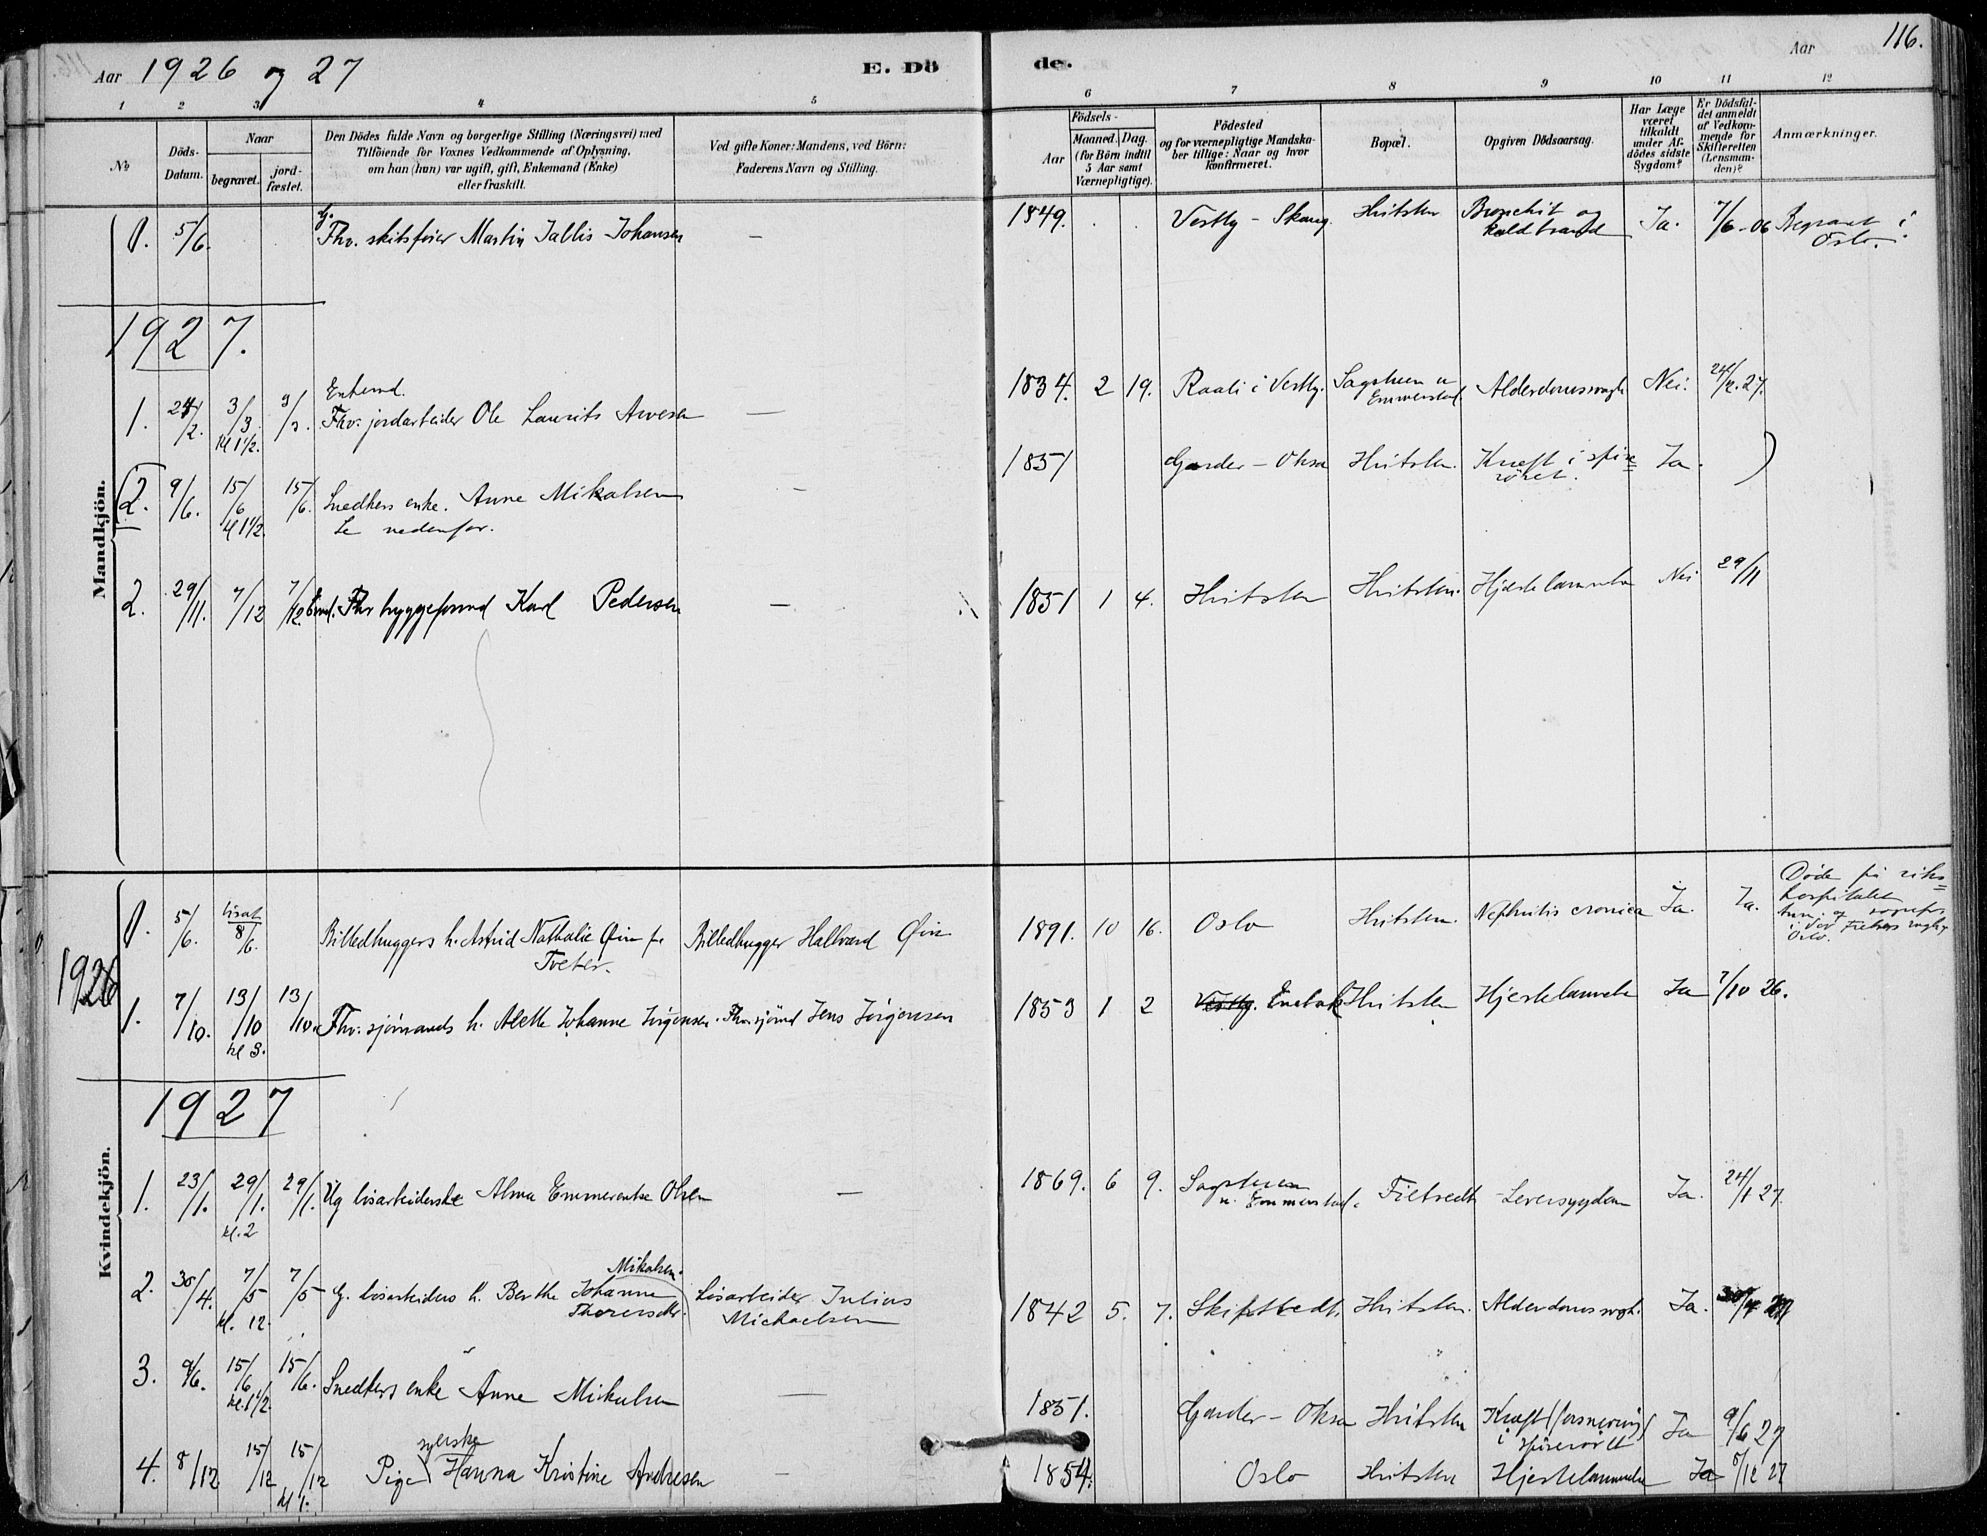 Aar 1926 og 27 E. Dö de. Aar 116.
1 2 3 4 5 6 7 8 9 10 11 12
No Döds-Datum. Naar begravet. jord-fæstet.
Den Dödes fulde Navn og borgerlige Stilling (Næringsvei) med
Tilföiende for Voxnes Vedkommende af Oplysning,
om han (hun) var ugift, gift, Enkemand (Enke)
eller fraskilt.
Ved gifte Koner: Mandens, ved Börn:
Faderens Navn og Stilling.
Födsels-
Aar Maaned. Dag.
(for Börn indtil
5 Aar samt
Værnepligtige).
Födested
og for værnepligtige Mandska-
ber tillige: Naar og hvor
konfirmeret.
Bopæl.
Opgiven Dödsaarsag.
Har Læge
været
tilkaldt
under Af-
dödes sidste
Sygdom?
Er Dödsfal-
det anmeldt
af Vedkom-
mende for
Skifteretten
(Lensman-
den)?
Anmærkninger.
Mandkjön.
0. 5/6. G. Fhv. skibsfører Martin Johansen — 1849. Vestby - Hvitsten Bronchit og koldbrand Ja. 7/6 - 06 Begravet i Oslo.
1927.
1. 24/2. 3/3 kl 1 1/2. 3/3. Enkemd. Fhv. jordarbeider Ole Laurits — 1834. 2 19. i Vestby. Sagstuen u Emmerstad. Nei. 24/2. 27.
(2. 9/6. 15/6 kl 1 1/2. 15/6. Snedkers enke. Anne Mikalsen — 1851 Garder - Hvitsten. Kræft i spise=røret. Ja. )
Se nedenfor.
2. 29/11. 7/12 7/12 Fhv byggeformd Karl Pedersen — 1851 1 4. Hvitsten Hvitsten. Hjertelammelse Nei 29/11
Kvindekjön.
1926
0. 5/6. 8/6. Billedhuggers h. Astrid Nathalie Tveter. Billedhugger Hallvard 1891. 10 16. Oslo Hvitsten. Nephritis cronica Ja. Ja. Døde på riks=hospitalet
Oslo.
1. 7/10. 13/10 kl 3. 13/10. Fhv. sjømands h. Alette Johanne Jørgensen. Fhv. sjømd Jens Jørgensen 1853 1 2 Vestby. Enebak Hvitsten Hjertelammelse Ja 7/10 26.
1927
1. 23/1. 29/1. kl. 2 29/1. Ug løsarbeiderske Alma Emmerentse Olsen — 1869. 6 9. Sagstuen u. Emmerstad. Filtvedt Leversygdom Ja. 24/1 27.
2. 30/4. 7/5 kl. 12. 7/5 G. løsarbeiders h. Berthe Johanne Mikalsen. Løsarbeider Julius Michaelsen 1842 5. 7. Skiptvedt. Hvitsten. Ja. 30/4 27
3. 9/6. 15/6 kl. 1 1/2. 15/6. Snedkers enke Anne Mikalsen — 1851. Garder - Hvitsten Kræft (forsnevring) i spiserøret Ja 9/6 27
4. 8/12 15/12 15/12 kl 1. Pige syerske Hanna Kristine Andresen — 1854. Oslo Hvitsten Hjertelammelse Ja 8/12 27